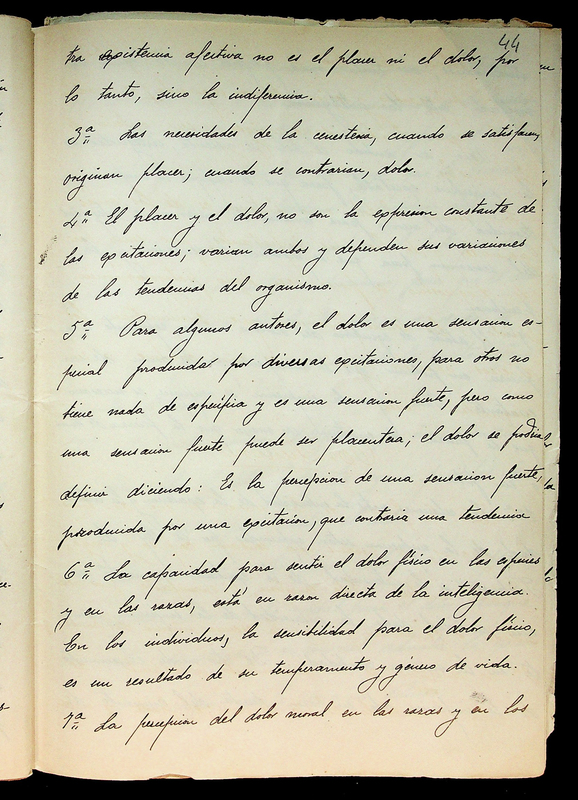 44
tra existencia afectiva no es el placer ni el dolor, por
lo tanto, sino la indiferencia.
3ª Las necesidades de la cenestesia, cuando se satisfacen,
originan placer; cuando se contrarian, dolor.
4ª El placer y el dolor, no son la expresion constante de
las excitaciones; varian ambos y dependen sus variaciones
de las tendencias del organismo.
5ª Para algunos autores, el dolor es una sensacion es-
pecial producida por diversas excitaciones, para otros no
tiene nada de especifica y es una sensacion fuerte, pero como
una sensacion fuerte puede ser placentera; el dolor se podria
definir diciendo: Es la percepcion de una sensacion fuerte,
producida por una excitacion, que contraria una tendencia
6ª La capacidad para sentir el dolor físico en las especies
y en las razas, está en razon directa de la inteligencia.
En los individuos, la sensibilidad para el dolor físico,
es un resultado de su temperamento y género de vida.
7ª La percepcion del dolor moral en las razas y en los